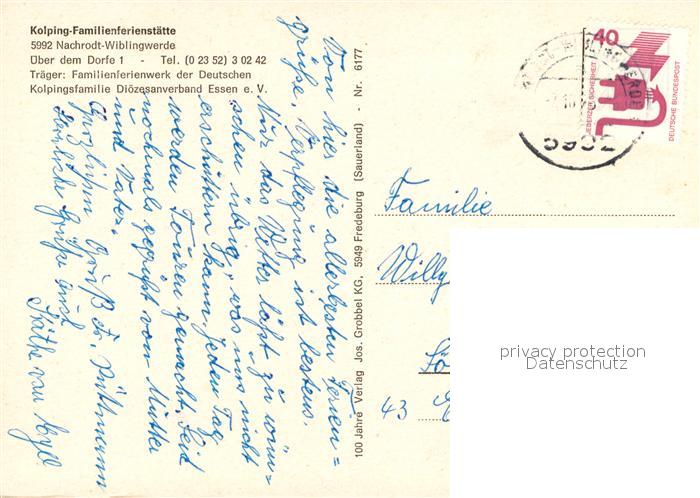 Kolping-Familienferienstätte
5992 Nachrodt-Wiblingwerde
Über dem Dorfe 1 - Tel. (0 23 52) 3 02 42
Träger: Familienferienwerk der Deutschen
Kolpingsfamilie Diözesanverband Essen e. V.
Von hier die allerbesten Ferien=
grüße. Verpflegung ist bestens.
Nur das Wetter läßt zu wün=
schen übrig, was uns nicht
erschüttern kann. Jeden Tag
werden Touren gemacht. Seid
nochmals gegrüßt von Mutter
und Vater.
Herzliche Grüße auch
Käthe van
100 Jahre Verlag Jos. Grobbel KG, 5949 Fredeburg (Sauerland) - Nr. 6177
40
JEDERZEIT SICHERHEIT
DEUTSCHE BUNDESPOST
Familie
Willy
43
privacy protection
Datenschutz